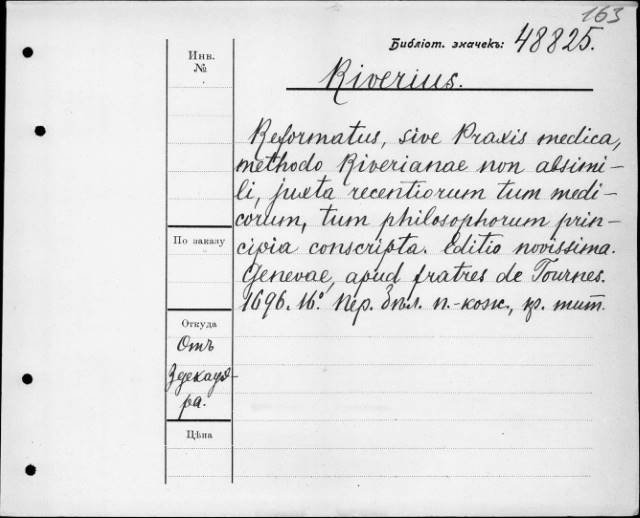 163
Библіот. значекъ: 48825.
Инв.
№
Riverius.
Reformatus, sive Praxis medica,
methodo Riverianae non absimi-
li, juxta recentiorum tum medi-
corum, tum philosophorum prin-
cipia conscripta. Editio novissima.
Genevae, apud fratres de Tournes.
1696. 16°. Пер. бѣл. п.-кож., кр. тит.
По заказу
Откуда
Отъ
Здекауэ-
ра.
Цѣна